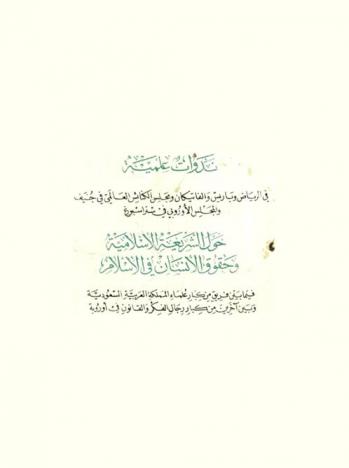 ندوات علمية
في الرياض وباريس والفاتيكان ومجلس الكنائس العالمي في جنيف
والمجلس الأوروبي في ستراسبورغ
حول الشريعة الاسلامية
وحقوق الانسان في الاسلام
فيما بين فريق من كبار علماء المملكة العربية السعودية
وبين آخرين من كبار رجال الفكر والقانون في أوروبة